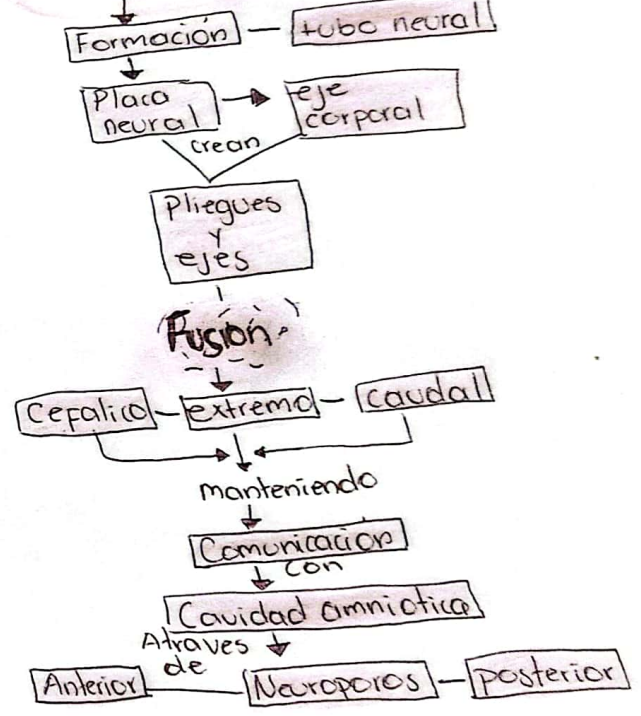 Formación tubo neural
Placa
neural
eje
corporal
crean
Pliegues
y
ejes
Fusión
Cefalico extremo caudal
manteniendo
Comunicacion
con
Cavidad amniotica
Atraves
de
Anterior Neuroporos posterior